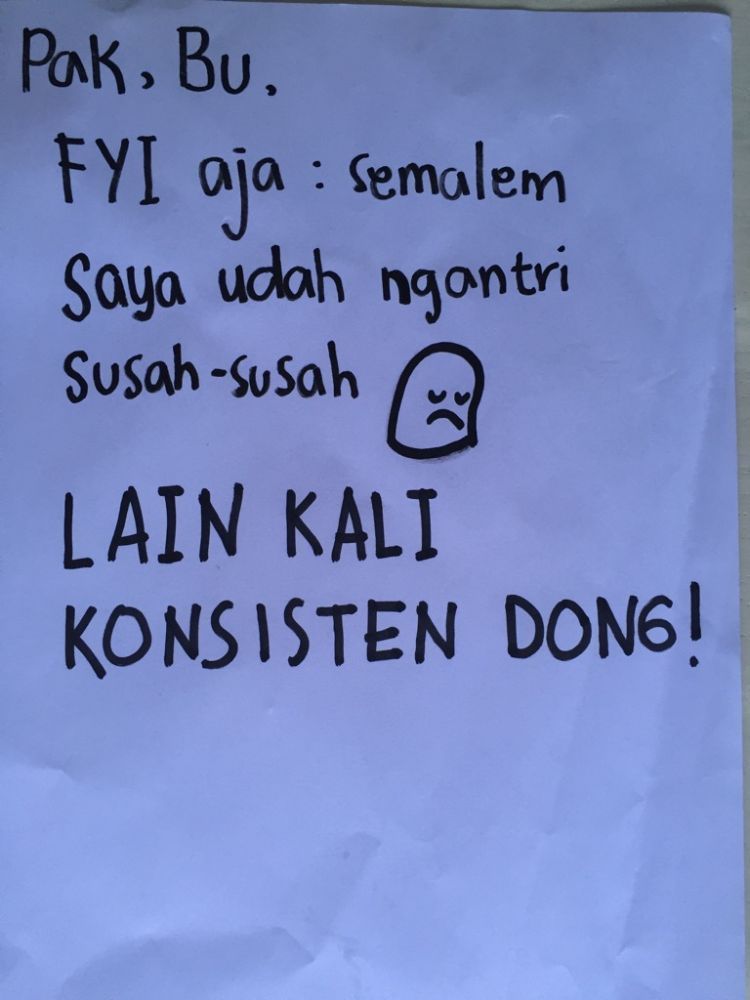 Pak, Bu.
FYI aja : semalem
saya udah ngantri
susah-susah
LAIN KALI
KONSISTEN DONG!